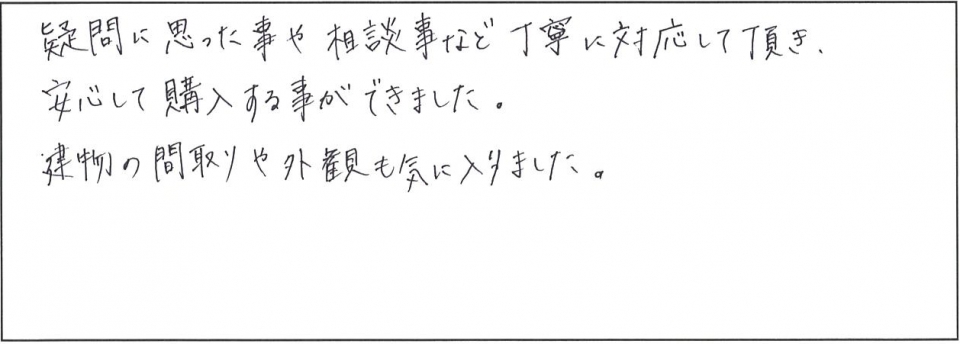 疑問に思った事や相談事など丁寧に対応して頂き、
安心して購入する事ができました。
建物の間取りや外観も気に入りました。